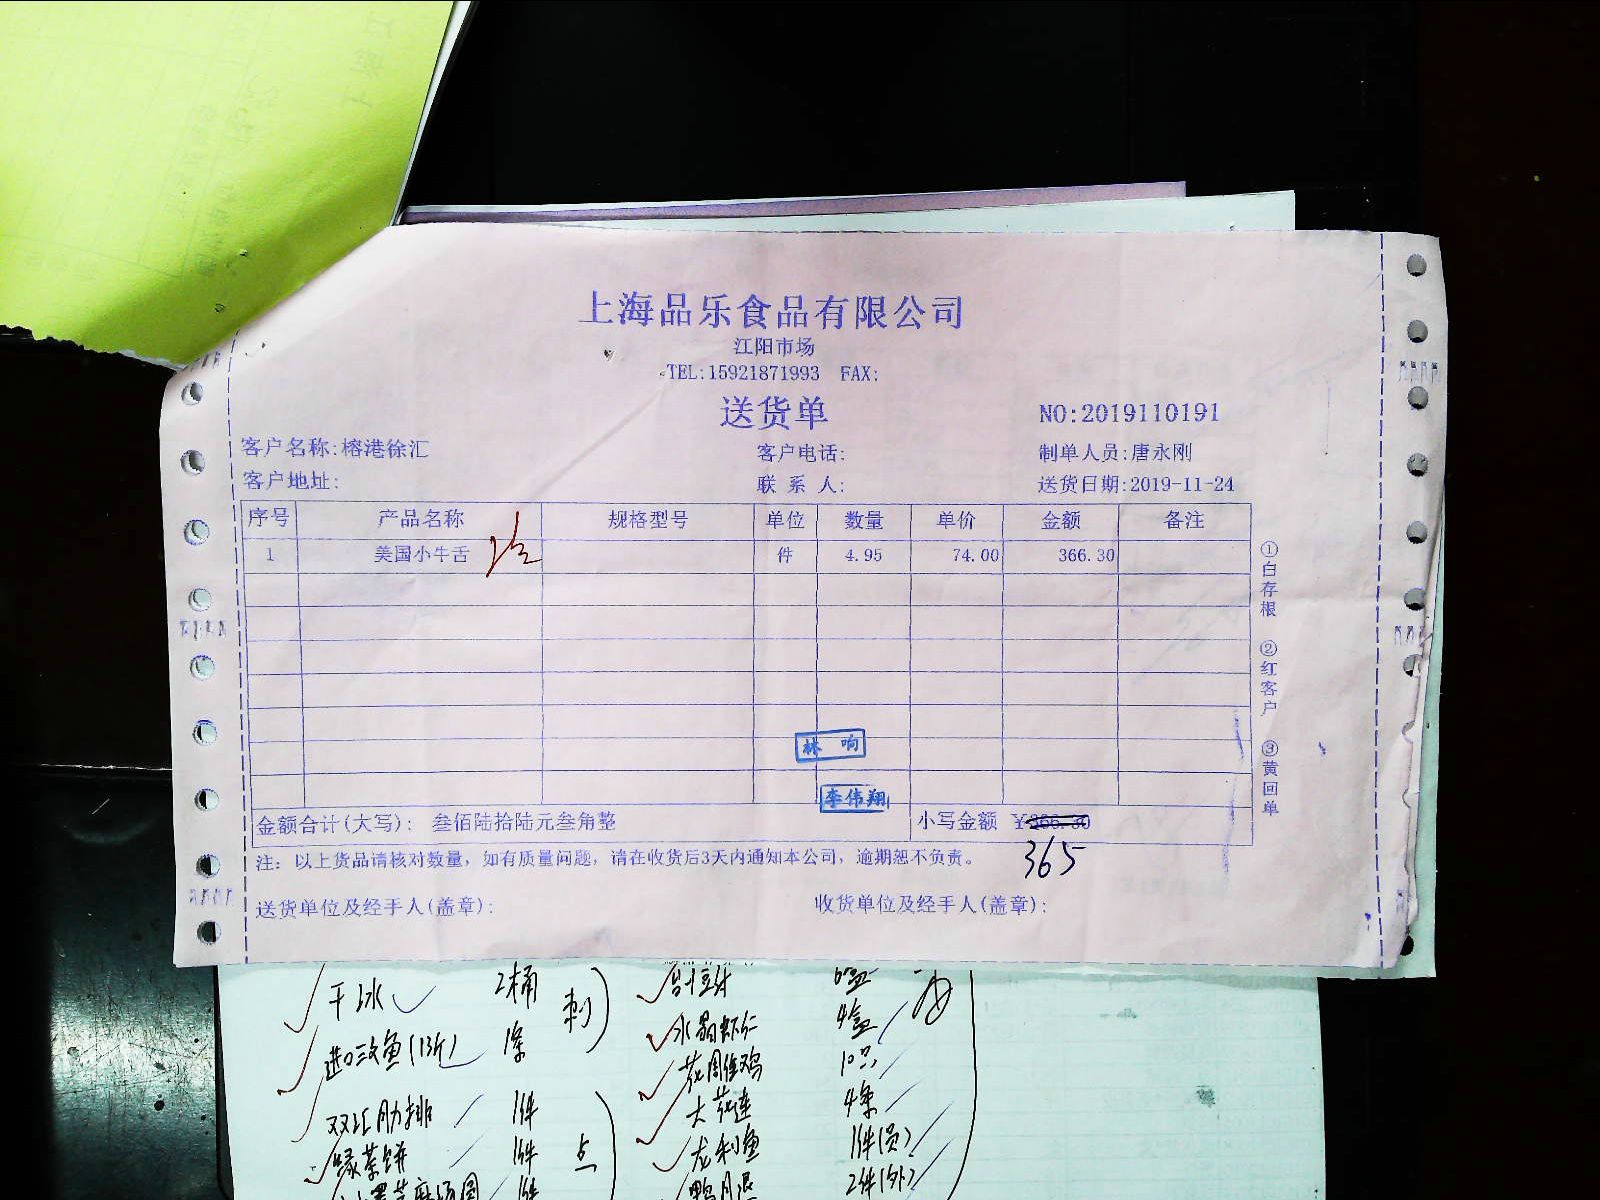 上海品乐食品有限公司
江阳市场
TEL:15921871993 FAX:
送货单
NO:2019110191
客户名称:榕港徐汇 客户电话: 制单人员:唐永刚
客户地址: 联系人: 送货日期:2019-11-24
序号 产品名称 规格型号 单位 数量 单价 金额 备注
1 美国小牛舌 件 4.95 74.00 366.30
①白存根 ②红客户 ③黄回单
林响
李伟翔
金额合计(大写): 叁佰陆拾陆元叁角整 小写金额 ¥366.30
365
注: 以上货品请核对数量, 如有质量问题, 请在收货后3天内通知本公司, 逾期恕不负责。
送货单位及经手人(盖章): 收货单位及经手人(盖章):
干冰 2桶 刺
进口三文鱼(13斤) 1条
双汇肋排 1件
绿茶饼 1件 点
6盒
水晶虾仁 4盒
花雕醉鸡 10只
大花连 4条
龙利鱼 1件(员)
2件(外)